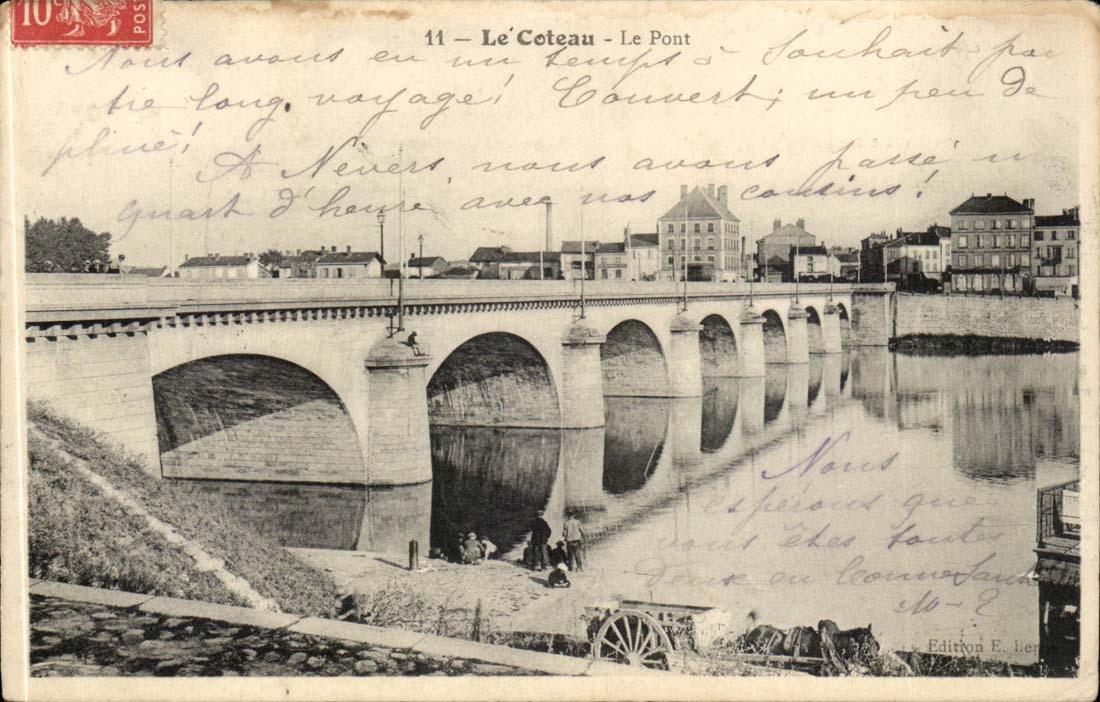 10
POS
11 - Le Coteau - Le Pont
Nous avons eu un temps à souhait pour
tre long voyage! Couvert; un peu de
pluie!
A Nevers, nous avons passé u
quart d'heure avec nos cousins!
Nous
espérons que
vous êtes toutes
deux en bonne santé
Edition E.